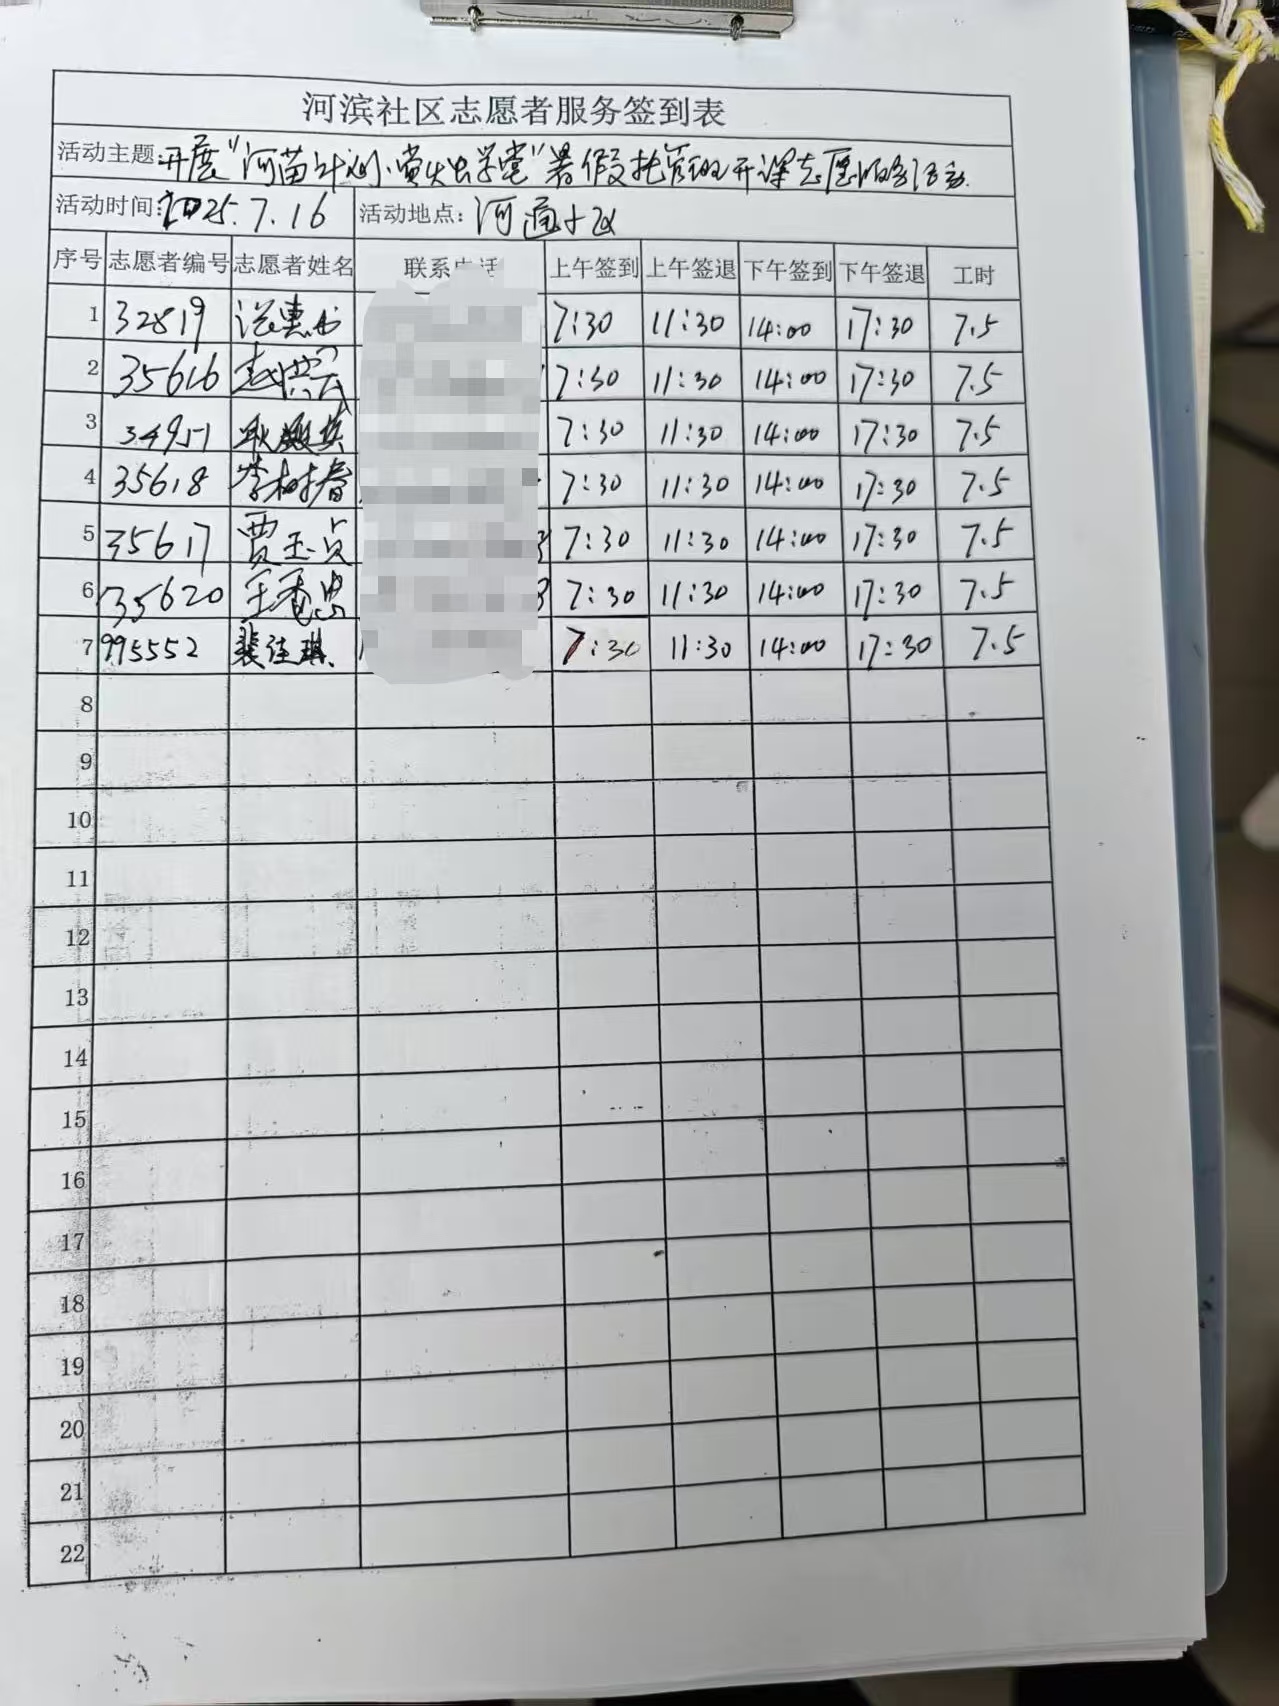 河滨社区志愿者服务签到表
活动主题: 开展"河苗计划·萤火虫学堂"暑假托管班开课志愿服务活动.
活动时间: 2025.7.16 活动地点: 河道小区
序号 志愿者编号 志愿者姓名 联系电话 上午签到 上午签退 下午签到 下午签退 工时
1 32819 7:30 11:30 14:00 17:30 7.5
2 35616 赵洪云 7:30 11:30 14:00 17:30 7.5
3 7:30 11:30 14:00 17:30 7.5
4 35618 李树春 7:30 11:30 14:00 17:30 7.5
5 35617 贾玉贞 7:30 11:30 14:00 17:30 7.5
6 35620 王秀忠 7:30 11:30 14:00 17:30 7.5
7 995552 裴佳琪 7:30 11:30 14:00 17:30 7.5
8
9
10
11
12
13
14
15
16
17
18
19
20
21
22